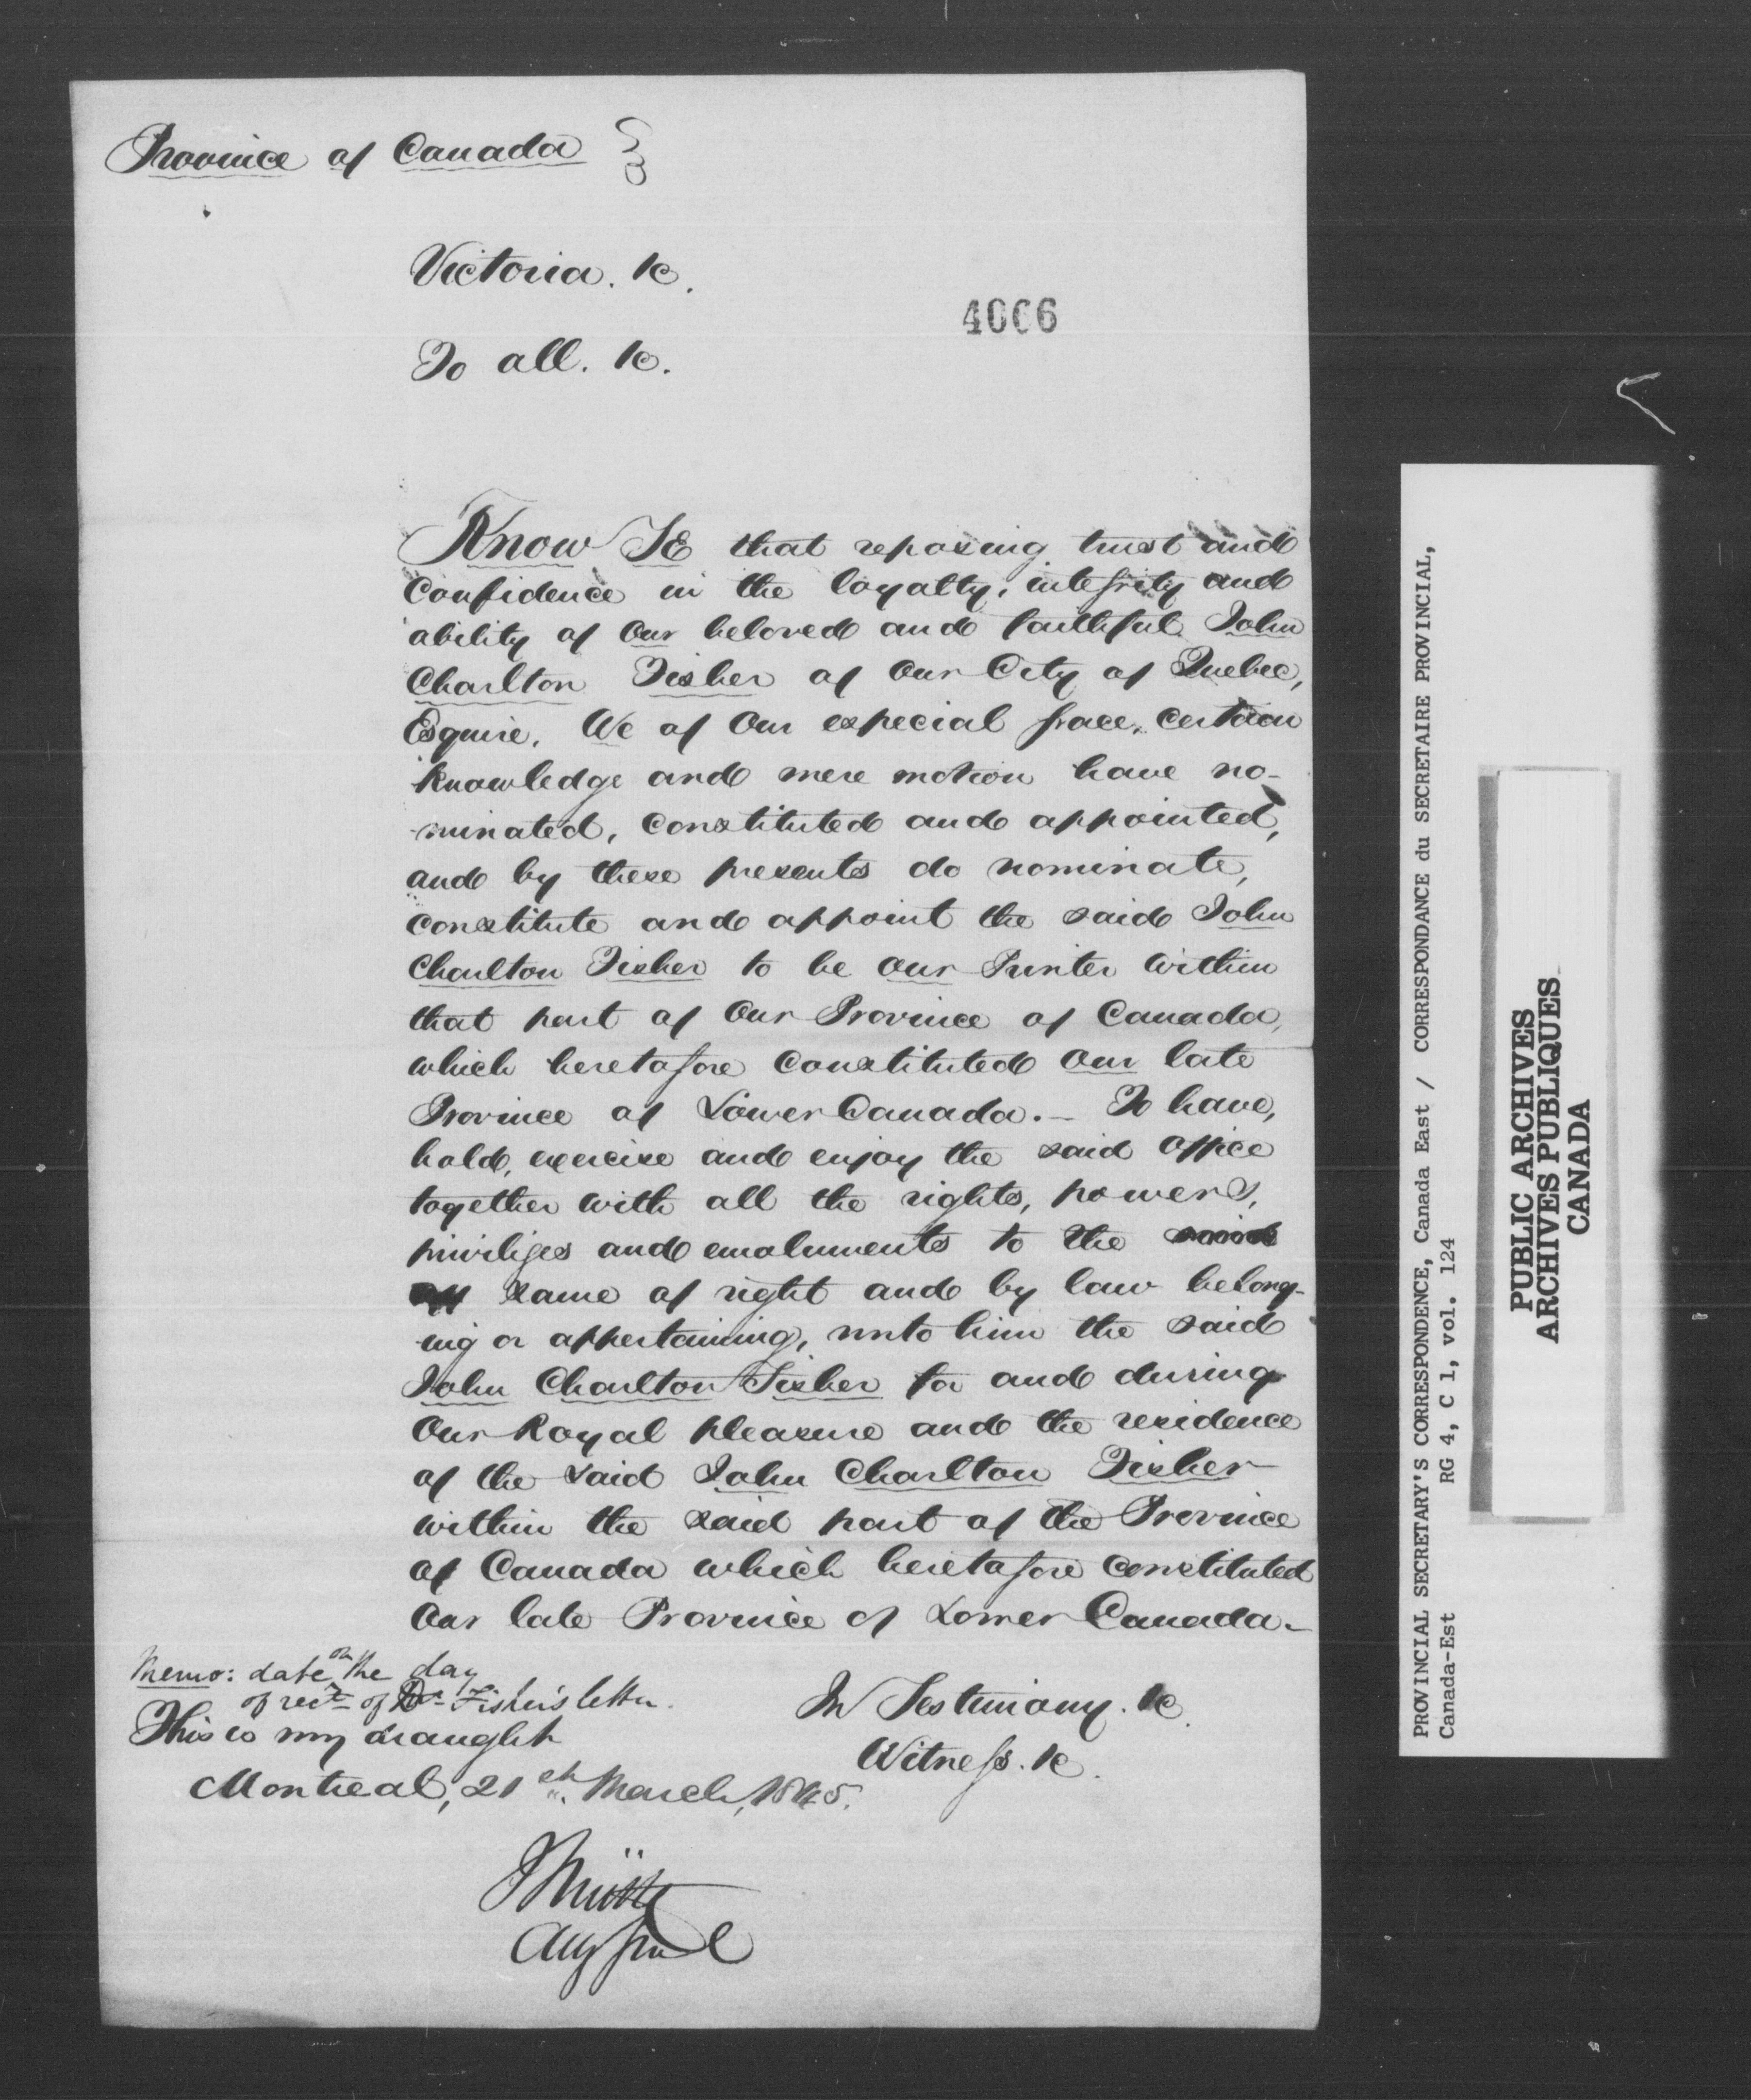 Province of Canada
Victoria. &c.
4066
To all. &c.
Know Ye that reposing trust and
Confidence in the loyalty, integrity and
ability of Our beloved and faithful John
Charlton Fisher of Our City of Quebec,
Esquire, We of Our especial grace, certain
knowledge and mere motion have no-
minated, constituted and appointed,
and by these presents do nominate,
constitute and appoint the said John
Charlton Fisher to be Our Printer within
that part of Our Province of Canada,
which heretofore constituted Our late
Province of Lower Canada. — To have,
hold, exercise and enjoy the said office
together with all the rights, powers,
priviliges and emoluments to the
same of right and by law belong-
ing or appertaining, unto him the said
John Charlton Fisher for and during
Our Royal pleasure and the residence
of the said John Charlton Fisher
within the said part of the Province
of Canada which heretofore constituted
Our late Province of Lower Canada.
Memo: date on the day
of rect of Dr Fisher's letter.
In Testimony. &c.
This is my draught
Witness. &c.
Montreal, 21st March, 1845.
Atty Genl
PROVINCIAL SECRETARY'S CORRESPONDENCE, Canada East / CORRESPONDANCE du SECRETAIRE PROVINCIAL,
Canada-Est RG 4, C 1, vol. 124
PUBLIC ARCHIVES
ARCHIVES PUBLIQUES
CANADA